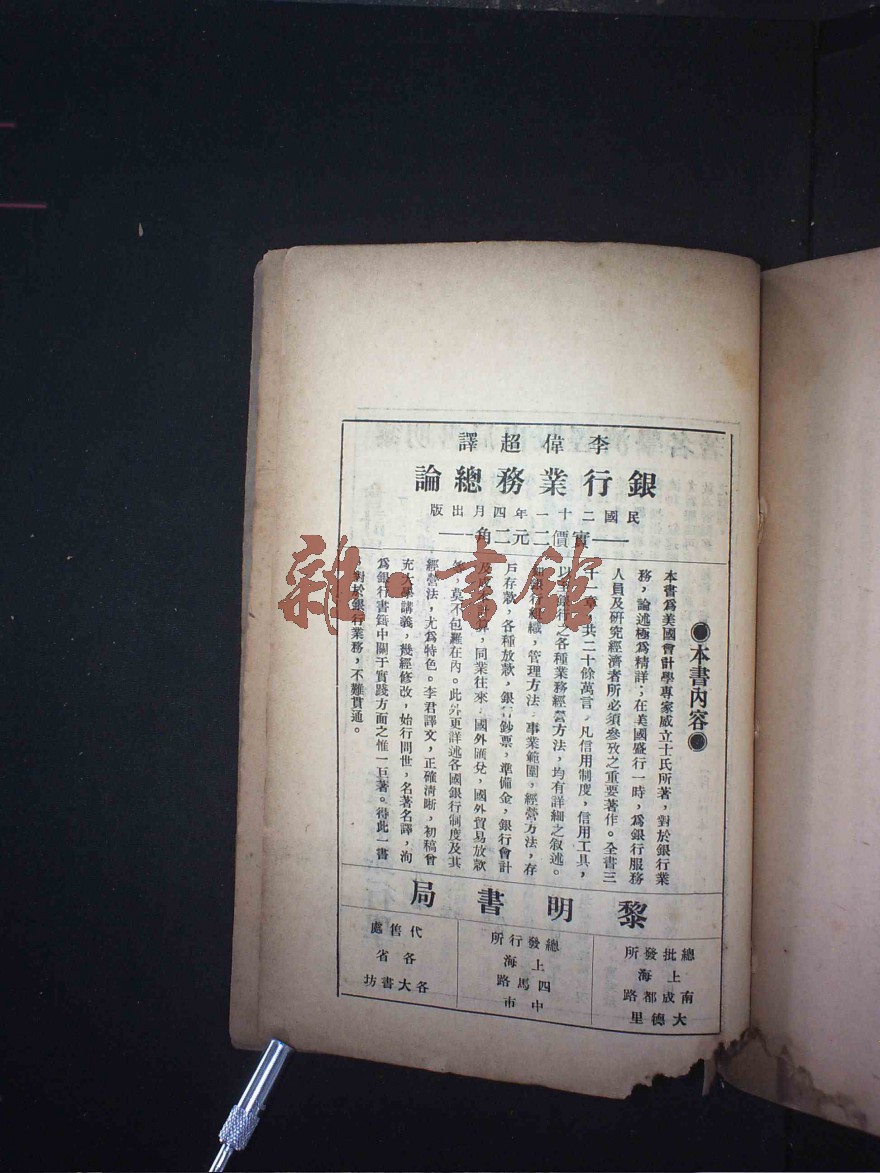 李偉超譯
銀行業務總論
民國二十一年四月出版
實價二元二角
●本書內容●
本書爲美國會計學專家威立士氏所著，對於銀行業
務，論述極爲精詳；在美國盛行一時，爲銀行服務
人員及研究經濟者所必須參攷之重要著作。全書三
十一章，共二十餘萬言，凡信用制度，信用工具，
以至銀行之各種業務經營方法，均有詳細之叙述。
如銀行組織，管理方法，事業範圍，經營方法，存
戶存款，各種放款，銀行鈔票，準備金，銀行會計
及成本計算，同業往來，國外匯兌，國外貿易放款
等，莫不包羅在內。此外更詳述各國銀行制度及其
經營法，尤爲特色。李君譯文，正確清晰，初稿曾
充大學講義，幾經修改，始行問世，名著名譯，洵
爲銀行書籍中關于實踐方面之惟一巨著。得此一書
對於銀行業務，不難貫通。
黎明書局
總批發所
上海
南成都路
大德里
總發行所
上海
四馬路
中市
代售處
各省
各大書坊
雜·書館